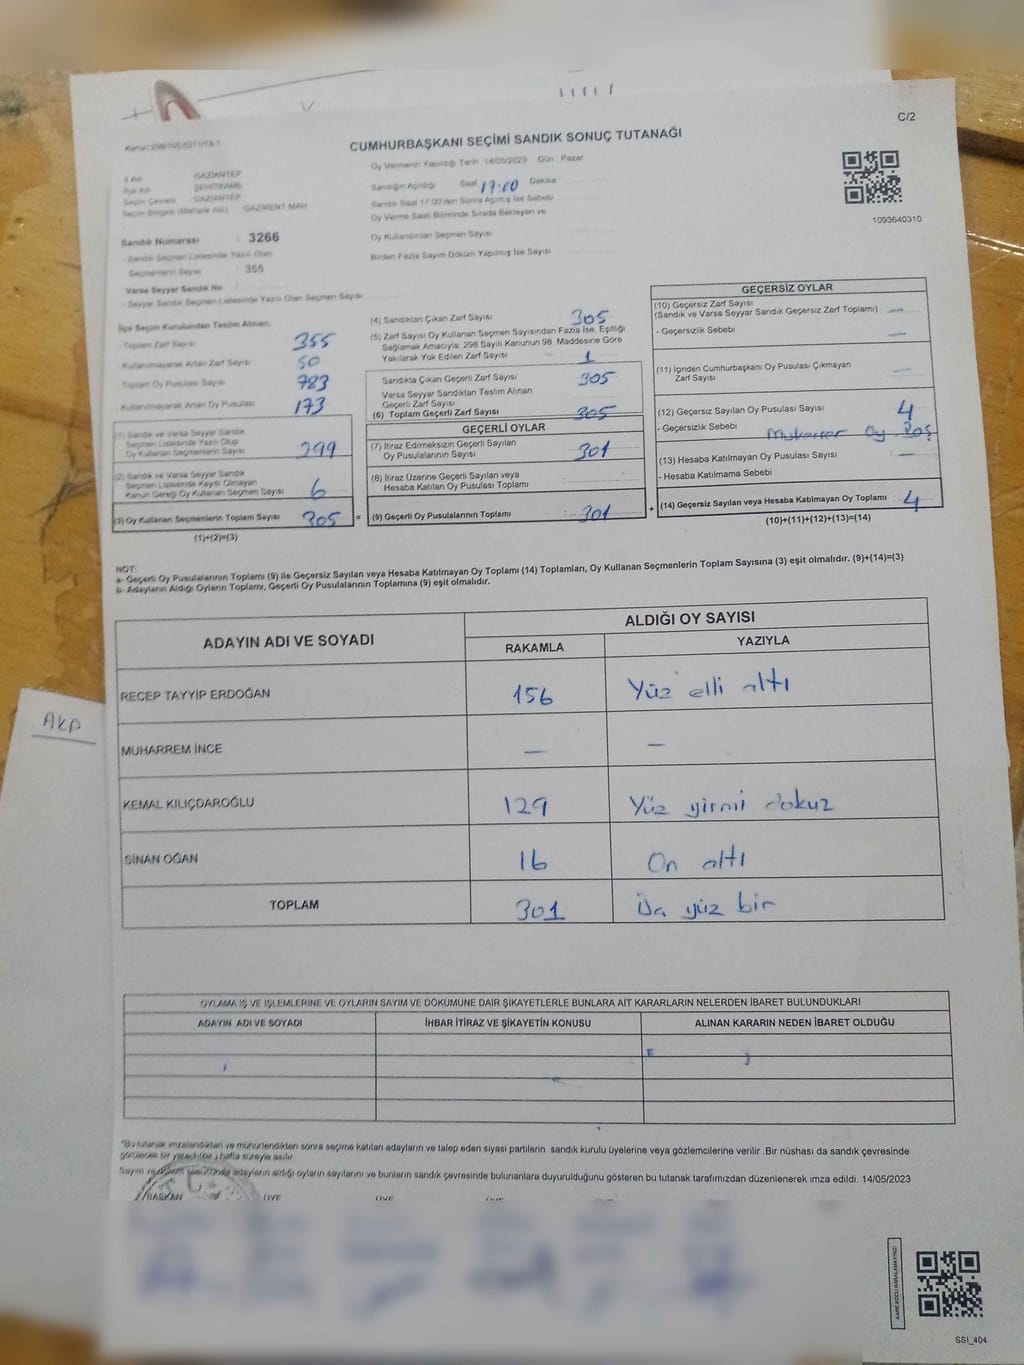 C/2
Kanun:298/105,6271/18-1
CUMHURBAŞKANI SEÇİMİ SANDIK SONUÇ TUTANAĞI
1093640310
İli Adı : GAZİANTEP
İlçe Adı : ŞEHİTKAMİL
Seçim Çevresi : GAZİANTEP
Seçim Bölgesi (Mahalle Adı) : GAZİKENT MAH
Sandık Numarası : 3266
- Sandık Seçmen Listesinde Yazılı Olan
Seçmenlerin Sayısı : 355
Varsa Seyyar Sandık No
- Seyyar Sandık Seçmen Listesinde Yazılı Olan Seçmen Sayısı
Oy Vermenin Yapıldığı Tarih 14/05/2023 Gün : Pazar
Sandığın Açıldığı Saat 17:00 Dakika
Sandık Saat 17:00'den Sonra Açılmış İse Sebebi
Oy Verme Saati Bitiminde Sırada Bekleyen ve
Oy Kullandırılan Seçmen Sayısı
Birden Fazla Sayım Döküm Yapılmış İse Sayısı
İlçe Seçim Kurulundan Teslim Alınan;
- Toplam Zarf Sayısı 355
- Kullanılmayarak Artan Zarf Sayısı 50
- Toplam Oy Pusulası Sayısı 783
- Kullanılmayarak Artan Oy Pusulası 173
(1) Sandık ve Varsa Seyyar Sandık
Seçmen Listesinde Yazılı Olup
Oy Kullanan Seçmenlerin Sayısı 299
(2) Sandık ve Varsa Seyyar Sandık
Seçmen Listesinde Kayıtlı Olmayan
Kanun Gereği Oy Kullanan Seçmen Sayısı 6
(3) Oy Kullanan Seçmenlerin Toplam Sayısı 305 =
(1)+(2)=(3)
(4) Sandıktan Çıkan Zarf Sayısı 305
(5) Zarf Sayısı Oy Kullanan Seçmen Sayısından Fazla İse, Eşitliği
Sağlamak Amacıyla, 298 Sayılı Kanunun 98. Maddesine Göre
Yakılarak Yok Edilen Zarf Sayısı 1
Sandıkta Çıkan Geçerli Zarf Sayısı 305
Varsa Seyyar Sandıktan Teslim Alınan
Geçerli Zarf Sayısı
(6) Toplam Geçerli Zarf Sayısı 305
GEÇERLİ OYLAR
(7) İtiraz Edilmeksizin Geçerli Sayılan
Oy Pusulalarının Sayısı : 301
(8) İtiraz Üzerine Geçerli Sayılan veya
Hesaba Katılan Oy Pusulası Toplamı :
(9) Geçerli Oy Pusulalarının Toplamı : 301 +
GEÇERSİZ OYLAR
(10) Geçersiz Zarf Sayısı
(Sandık ve Varsa Seyyar Sandık Geçersiz Zarf Toplamı) —
- Geçersizlik Sebebi —
(11) İçinden Cumhurbaşkanı Oy Pusulası Çıkmayan
Zarf Sayısı —
(12) Geçersiz Sayılan Oy Pusulası Sayısı 4
- Geçersizlik Sebebi Mükerrer Oy Boş
(13) Hesaba Katılmayan Oy Pusulası Sayısı —
- Hesaba Katılmama Sebebi :
(14) Geçersiz Sayılan veya Hesaba Katılmayan Oy Toplamı 4
(10)+(11)+(12)+(13)=(14)
NOT:
a- Geçerli Oy Pusulalarının Toplamı (9) ile Geçersiz Sayılan veya Hesaba Katılmayan Oy Toplamı (14) Toplamları, Oy Kullanan Seçmenlerin Toplam Sayısına (3) eşit olmalıdır. (9)+(14)=(3)
b- Adayların Aldığı Oyların Toplamı, Geçerli Oy Pusulalarının Toplamına (9) eşit olmalıdır.
ADAYIN ADI VE SOYADI
ALDIĞI OY SAYISI
RAKAMLA YAZIYLA
RECEP TAYYİP ERDOĞAN 156 Yüz elli altı
MUHARREM İNCE — —
KEMAL KILIÇDAROĞLU 129 Yüz yirmi dokuz
SİNAN OĞAN 16 On altı
TOPLAM 301 Üç yüz bir
AKP
OYLAMA İŞ VE İŞLEMLERİNE VE OYLARIN SAYIM VE DÖKÜMÜNE DAİR ŞİKAYETLERLE BUNLARA AİT KARARLARIN NELERDEN İBARET BULUNDUKLARI
ADAYIN ADI VE SOYADI İHBAR İTİRAZ VE ŞİKAYETİN KONUSU ALINAN KARARIN NEDEN İBARET OLDUĞU
"Bu tutanak imzalandıktan ve mühürlendikten sonra seçime katılan adayların ve talep eden siyasi partilerin sandık kurulu üyelerine veya gözlemcilerine verilir .Bir nüshası da sandık çevresinde
görülecek bir yere(bir ) hafta süreyle asılır.
Sayım ve döküm sonucunda adayların aldığı oyların sayılarını ve bunların sandık çevresinde bulunanlara duyurulduğunu gösteren bu tutanak tarafımızdan düzenlenerek imza edildi. 14/05/2023
BAŞKAN ÜYE ÜYE ÜYE ÜYE
SSI_404